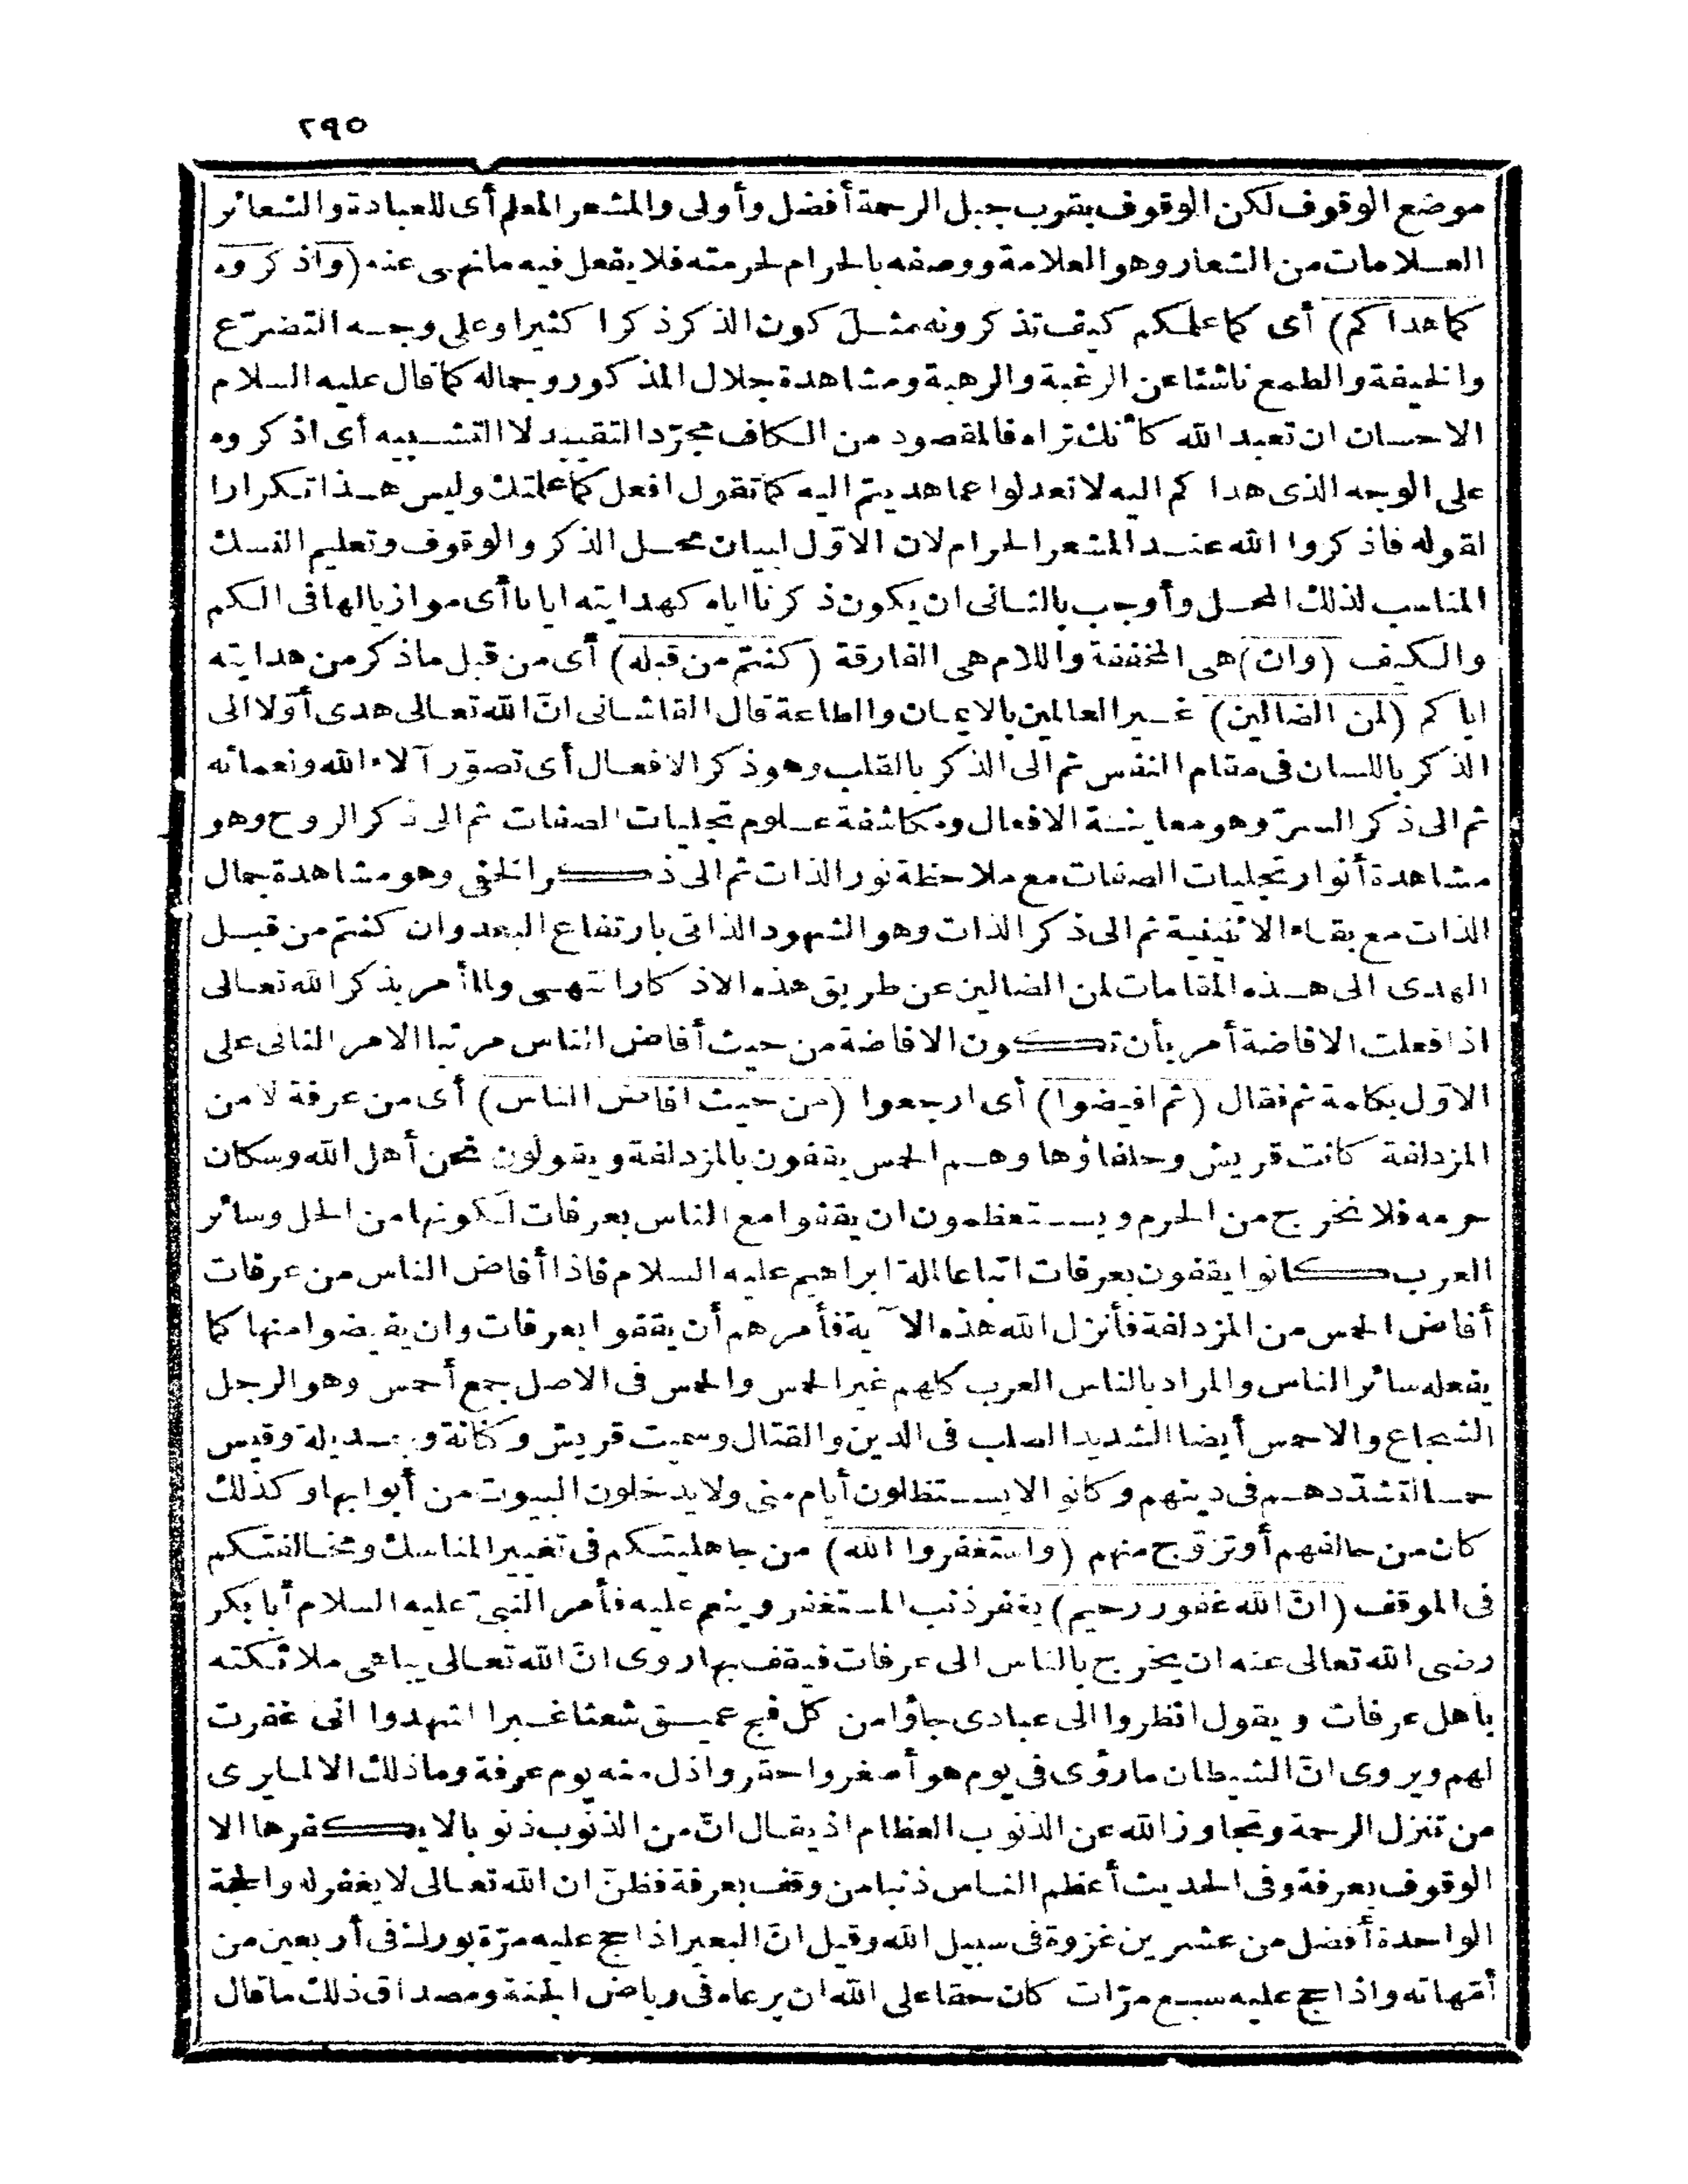 ٢٩٥
موضع الوقوف لكن الوقوف بقرب جبل الرحمة أفضل وأولى والمشعر المعلم أى للعبادة والشعائر
العلامات من الشعار وهو العلامة ووصفه بالحرام لحرمته فلا يفعل فيه ما نهى عنه (واذكروه
كما هداكم) أى كما علمكم كيف تذكرونه مثل كون الذكر ذكرا كثيرا وعلى وجه التضرّع
والخيفة والطمع ناشئا عن الرغبة والرهبة ومشاهدة جلال المذكور وجماله كما قال عليه السلام
الاحسان ان تعبد الله كأنك تراه فالمقصود من الكاف مجرّد التقييد لا التشبيه أى اذكروه
على الوجه الذى هداكم اليه لا تعدلوا عما هديتم اليه كما تقول افعل كما علمتك وليس هذا تكرارا
لقوله فاذكروا الله عند المشعر الحرام لان الاوّل لبيان محل الذكر والوقوف وتعليم النسك
المناسب لذلك المحل وأوجب بالثانى ان يكون ذكرنا اياه كهدايته ايانا أى موازيا لها فى الكم
والكيف (وان) هى المخففة واللام هى الفارقة (كنتم من قبله) أى من قبل ما ذكر من هدايته
اياكم (لمن الضالين) غير العالمين بالايمان والطاعة قال القاشانى انّ الله تعالى هدى أوّلا الى
الذكر باللسان فى مقام النفس ثم الى الذكر بالقلب وهو ذكر الافعال أى تصوّر آلاء الله ونعمائه
ثم الى ذكر السرّ وهو معاينة الافعال ومكاشفة علوم تجليات الصفات ثم الى ذكر الروح وهو
مشاهدة أنوار تجليات الصفات مع ملاحظة نور الذات ثم الى ذكر الخفى وهو مشاهدة جمال
الذات مع بقاء الاثنينية ثم الى ذكر الذات وهو الشهود الذاتى بارتفاع البعد وان كنتم من قبل
الهدى الى هذه المقامات لمن الضالين عن طريق هذه الاذكار انتهى ولما أمر بذكر الله تعالى
اذا فعلت الافاضة أمر بأن تكون الافاضة من حيث أفاض الناس مرتبا الامر الثانى على
الاوّل بكلمة ثم فقال (ثم افيضوا) أى ارجعوا (من حيث افاض الناس) أى من عرفة لا من
المزدلفة كانت قريش وحلفاؤها وهم الحمس يقفون بالمزدلفة ويقولون نحن أهل الله وسكان
حرمه فلا نخرج من الحرم ويستعظمون ان يقفوا مع الناس بعرفات لكونها من الحل وسائر
العرب كانوا يقفون بعرفات اتباعا لملة ابراهيم عليه السلام فاذا أفاض الناس من عرفات
أفاض الحمس من المزدلفة فأنزل الله هذه الآية فأمرهم أن يقفوا بعرفات وان يفيضوا منها كما
يفعله سائر الناس والمراد بالناس العرب كلهم غير الحمس والحمس فى الاصل جمع أحمس وهو الرجل
الشجاع والاحمس أيضا الشديد الصلب فى الدين والقتال وسميت قريش وكنانة وجديلة وقيس
حمسا لتشدّدهم فى دينهم وكانوا لا يستظلون أيام منى ولا يدخلون البيوت من أبوابها وكذلك
كان من حالفهم أو تزوّج منهم (واستغفروا الله) من جاهليتكم فى تغيير المناسك ومخالفتكم
فى الموقف (انّ الله غفور رحيم) يغفر ذنب المستغفر وينعم عليه فأمر النبىّ عليه السلام أبا بكر
رضى الله تعالى عنه ان يخرج بالناس الى عرفات فيقف بها روى انّ الله تعالى يباهى ملائكته
بأهل عرفات ويقول انظروا الى عبادى جاؤا من كل فج عميق شعثا غبرا اشهدوا انى غفرت
لهم ويروى انّ الشيطان ما رؤى فى يوم هو أصغر واحقر واذل منه يوم عرفة وما ذلك الا لما يرى
من تنزل الرحمة وتجاوز الله عن الذنوب العظام اذ يقال انّ من الذنوب ذنوبا لا يكفرها الا
الوقوف بعرفة وفى الحديث أعظم الناس ذنبا من وقف بعرفة فظنّ ان الله تعالى لا يغفر له والحجة
الواحدة أفضل من عشرين غزوة فى سبيل الله وقيل انّ البعير اذا حج عليه مرّة بورك فى أربعين من
أمّهاته واذا حج عليه سبع مرّات كان حقا على الله ان يرعاه فى رياض الجنة ومصداق ذلك ما قال